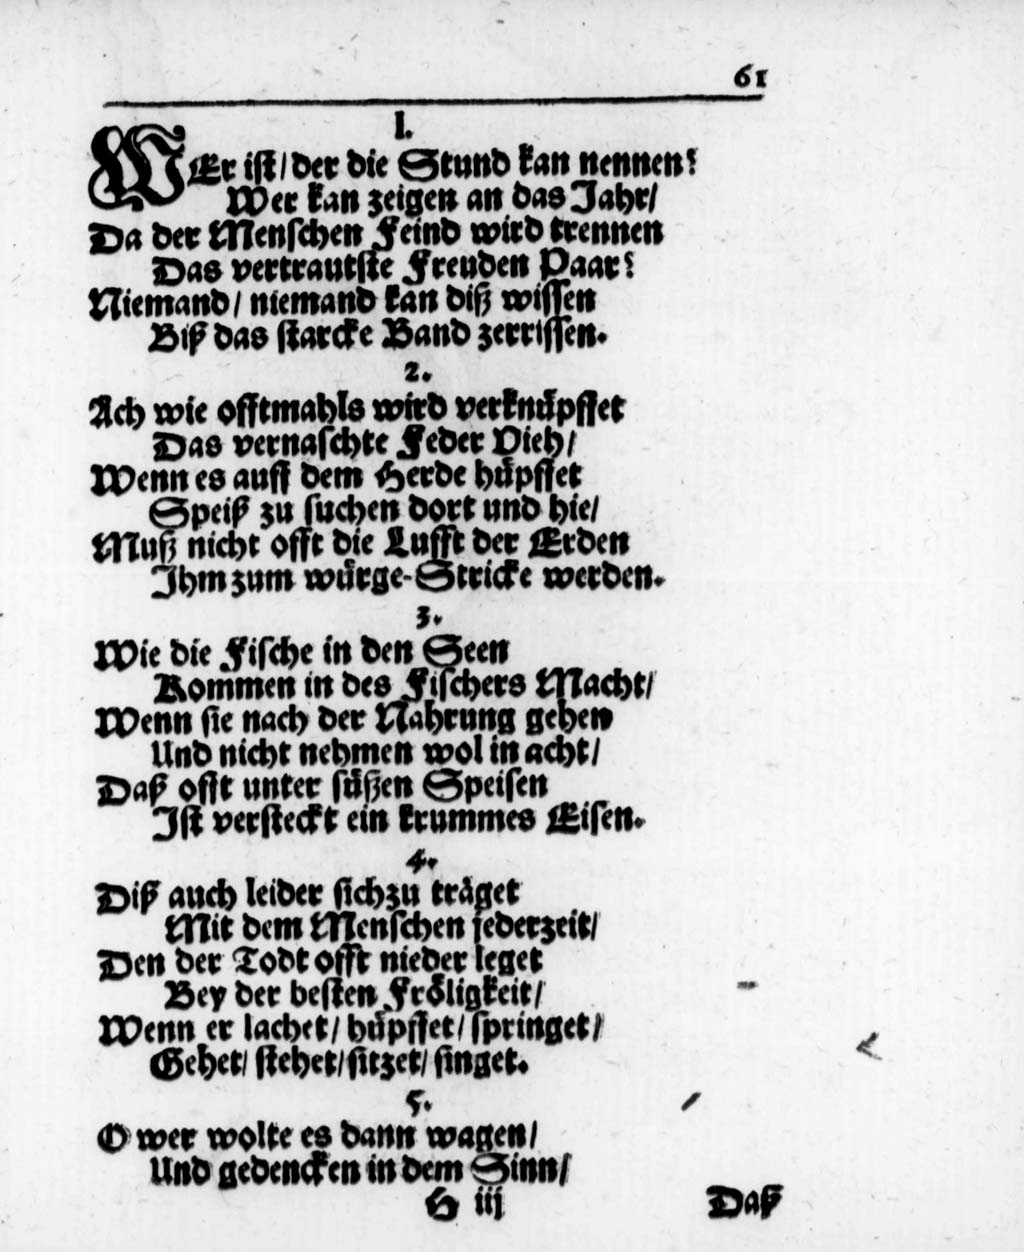 61
I.
WEr ist/ der die Stund kan nennen?
Wer kan zeigen an das Jahr/
Da der Menschen Feind wird trennen
Das vertrautste Freuden Paar?
Niemand/ niemand kan diß wissen
Biß das starcke Band zerrissen.
2.
Ach wie offtmahls wird verknüpffet
Das vernaschte Feder Vieh/
Wenn es auff dem Herde hüpffet
Speiß zu suchen dort und hie/
Muß nicht offt die Lufft der Erden
Ihm zum würge-Stricke werden.
3.
Wie die Fische in den Seen
Kommen in des Fischers Macht/
Wenn sie nach der Nahrung gehen
Und nicht nehmen wol in acht/
Daß offt unter süßen Speisen
Ist versteckt ein krummes Eisen.
4.
Diß auch leider sich zu träget
Mit dem Menschen jederzeit/
Den der Todt offt nieder leget
Bey der besten Fröligkeit/
Wenn er lachet/ hüpffet/ springet/
Gehet/ stehet/ sitzet/ singet.
5.
O wer wolte es dann wagen/
Und gedencken in dem Sinn/
H iij Daß